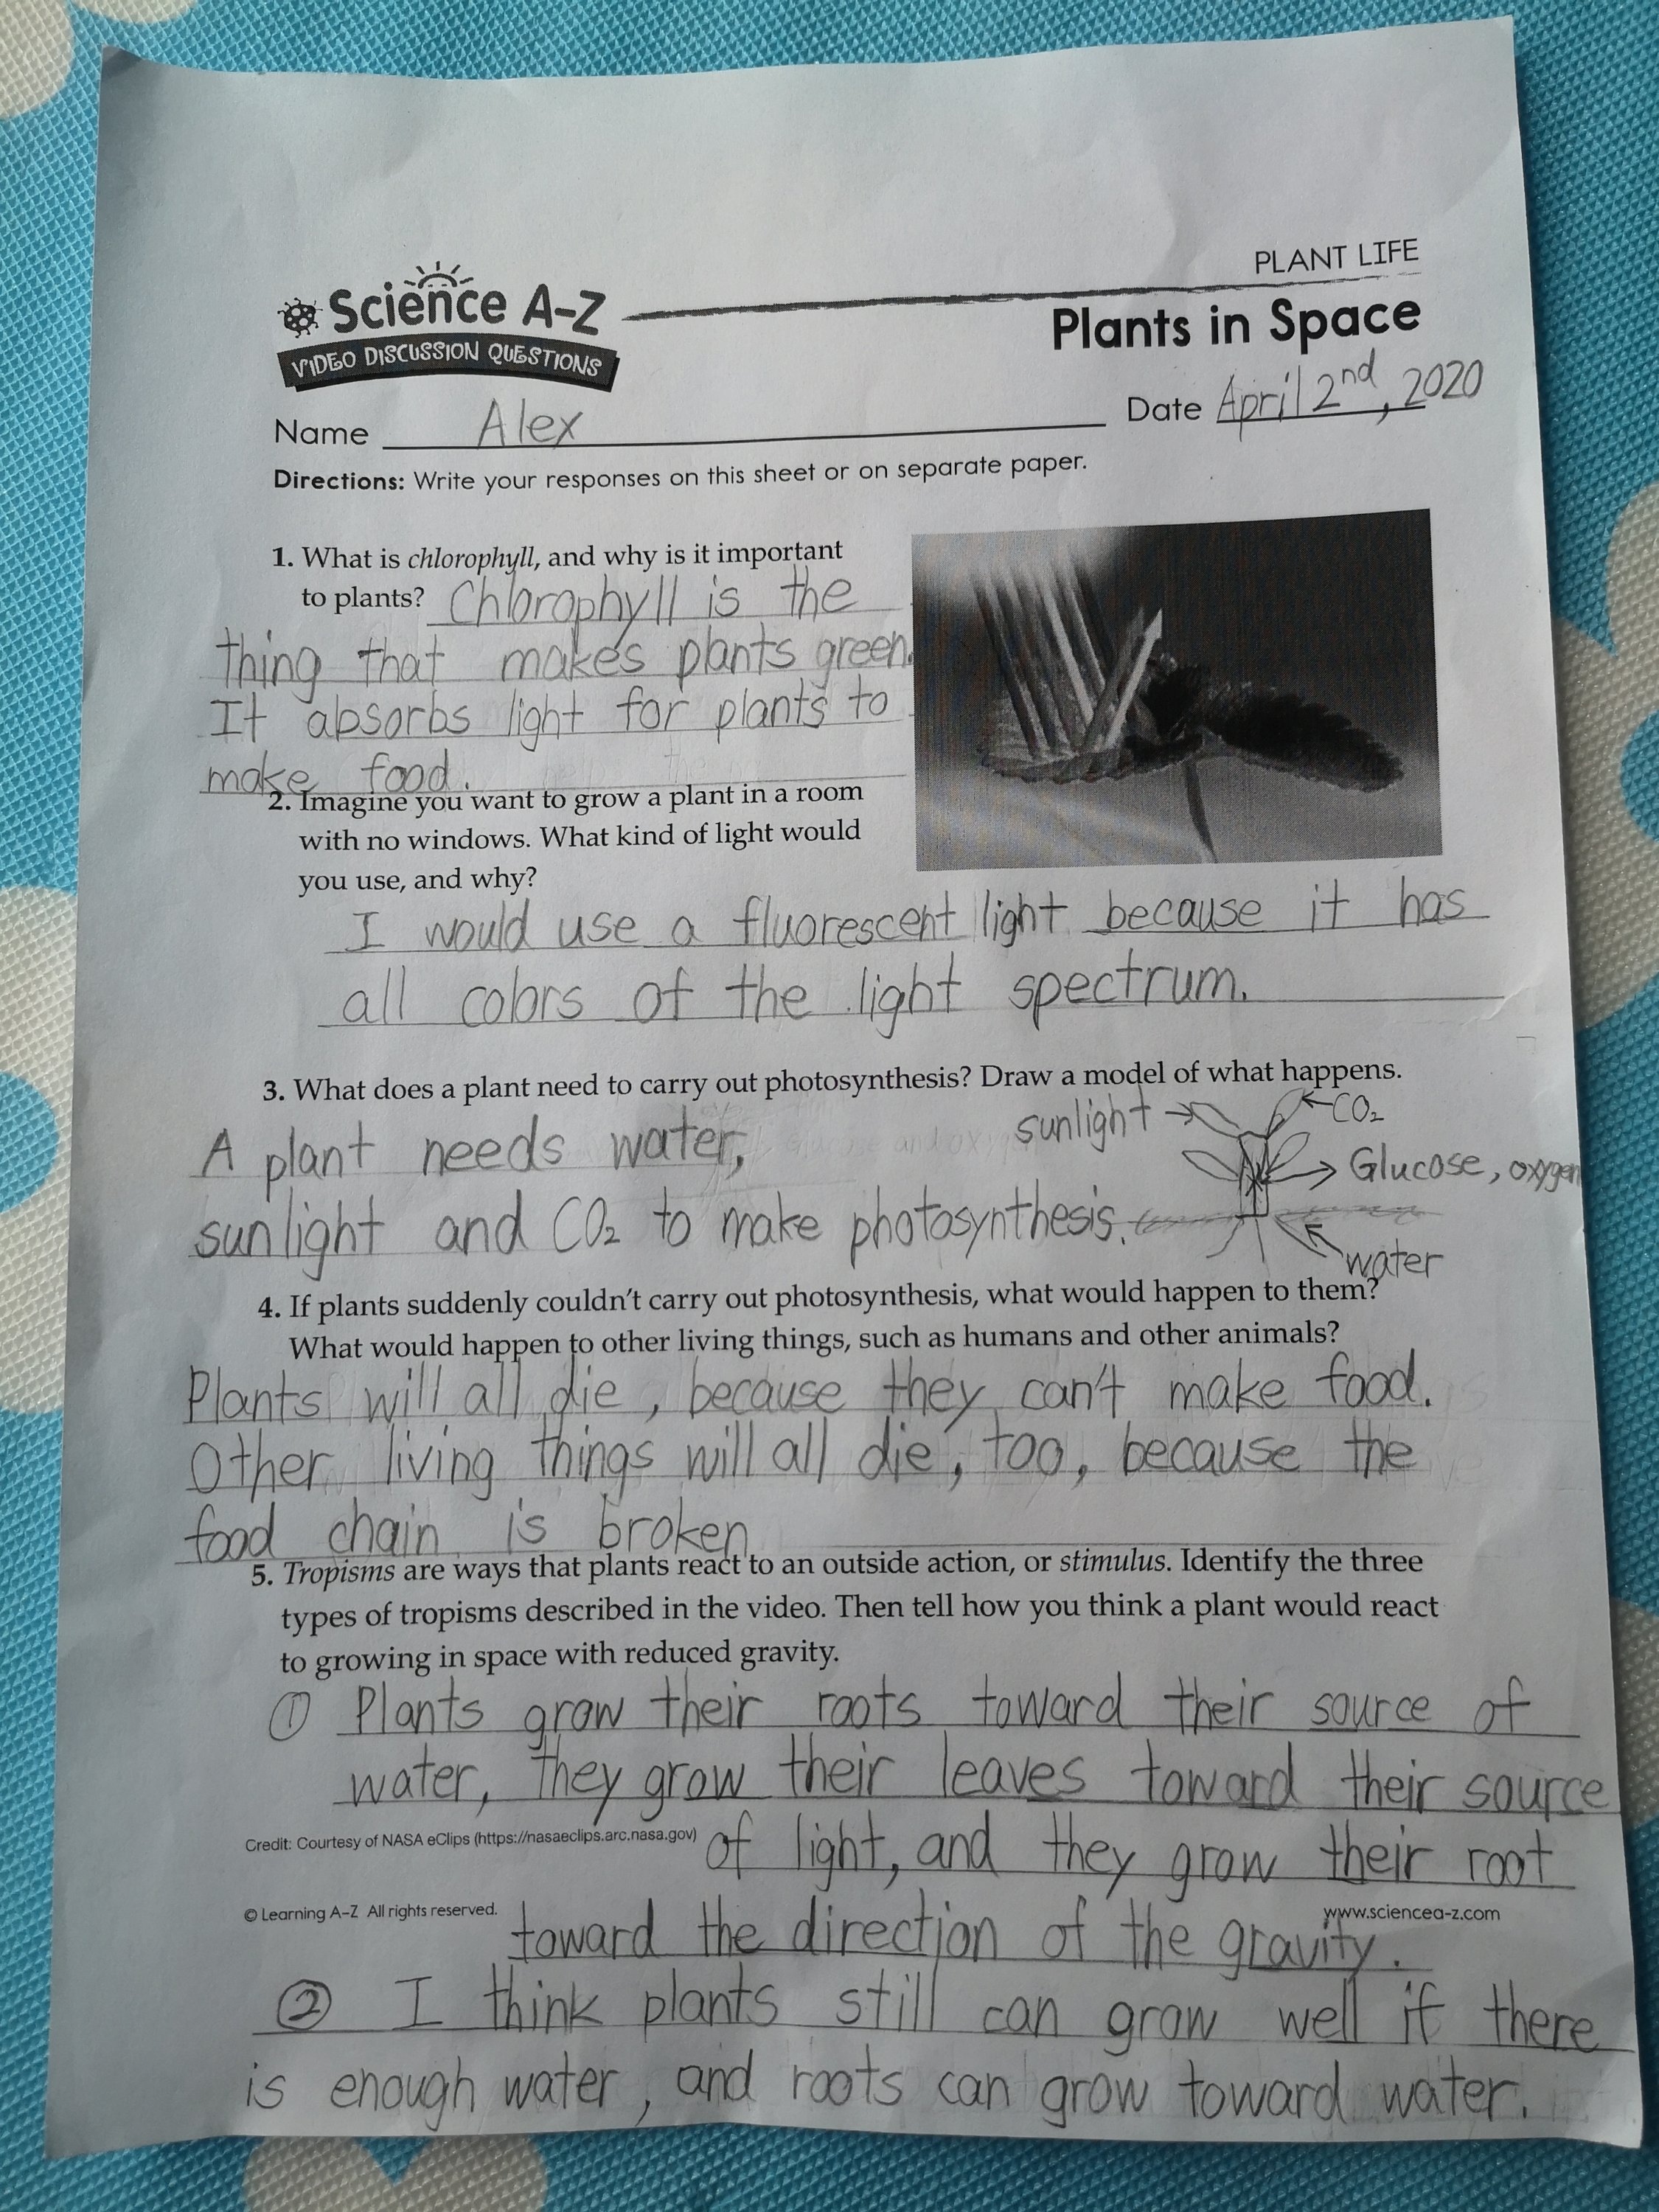 PLANT LIFE
Science A-Z
VIDEO DISCUSSION QUESTIONS
Plants in Space
Name Alex
Date April 2nd, 2020
Directions: Write your responses on this sheet or on separate paper.
1. What is chlorophyll, and why is it important
to plants? Chlorophyll is the
thing that makes plants green.
It absorbs light for plants to
make food.
2. Imagine you want to grow a plant in a room
with no windows. What kind of light would
you use, and why?
I would use a fluorescent light because it has
all colors of the light spectrum.
3. What does a plant need to carry out photosynthesis? Draw a model of what happens.
sunlight
CO₂
A plant needs water,
Glucose, oxygen
sunlight and CO₂ to make photosynthesis.
water
4. If plants suddenly couldn't carry out photosynthesis, what would happen to them?
What would happen to other living things, such as humans and other animals?
Plants will all die, because they can't make food.
Other living things will all die, too, because the
food chain is broken
5. Tropisms are ways that plants react to an outside action, or stimulus. Identify the three
types of tropisms described in the video. Then tell how you think a plant would react
to growing in space with reduced gravity.
① Plants grow their roots toward their source of
water, they grow their leaves toward their source
Credit: Courtesy of NASA eClips (https://nasaeclips.arc.nasa.gov)
of light, and they grow their root
© Learning A–Z All rights reserved.
www.sciencea-z.com
toward the direction of the gravity.
② I think plants still can grow well if there
is enough water, and roots can grow toward water.